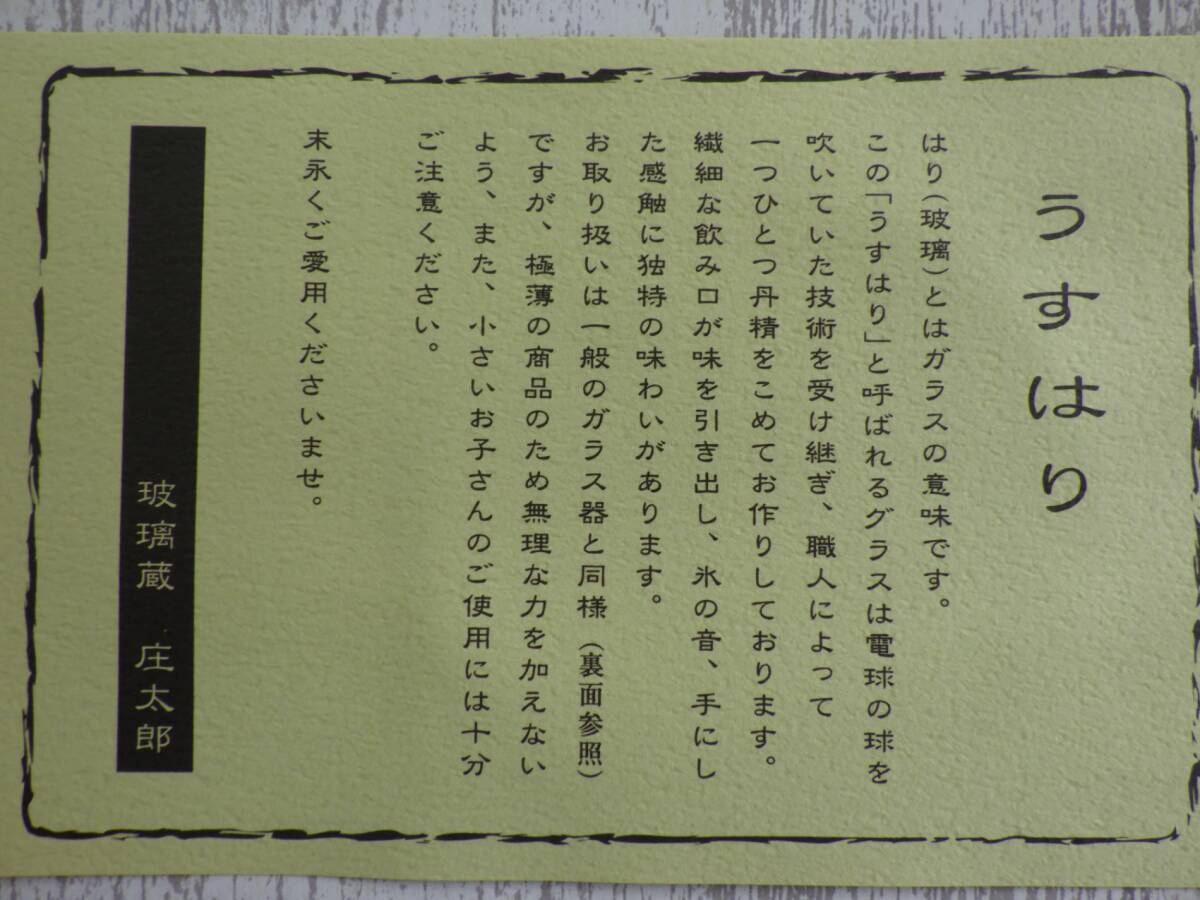 うすはり
はり（玻璃）とはガラスの意味です。
この「うすはり」と呼ばれるグラスは電球の球を
吹いていた技術を受け継ぎ、職人によって
一つひとつ丹精をこめてお作りしております。
繊細な飲み口が味を引き出し、氷の音、手にし
た感触に独特の味わいがあります。
お取り扱いは一般のガラス器と同様（裏面参照）
ですが、極薄の商品のため無理な力を加えない
よう、また、小さいお子さんのご使用には十分
ご注意ください。
末永くご愛用くださいませ。
玻璃蔵 庄太郎